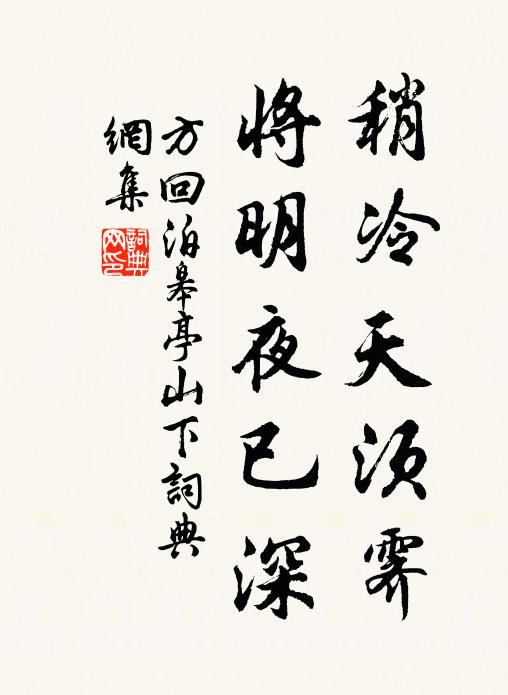 稍冷天須霽
將明夜已深
方回泊皋亭山下詞典
網集
詞典網印